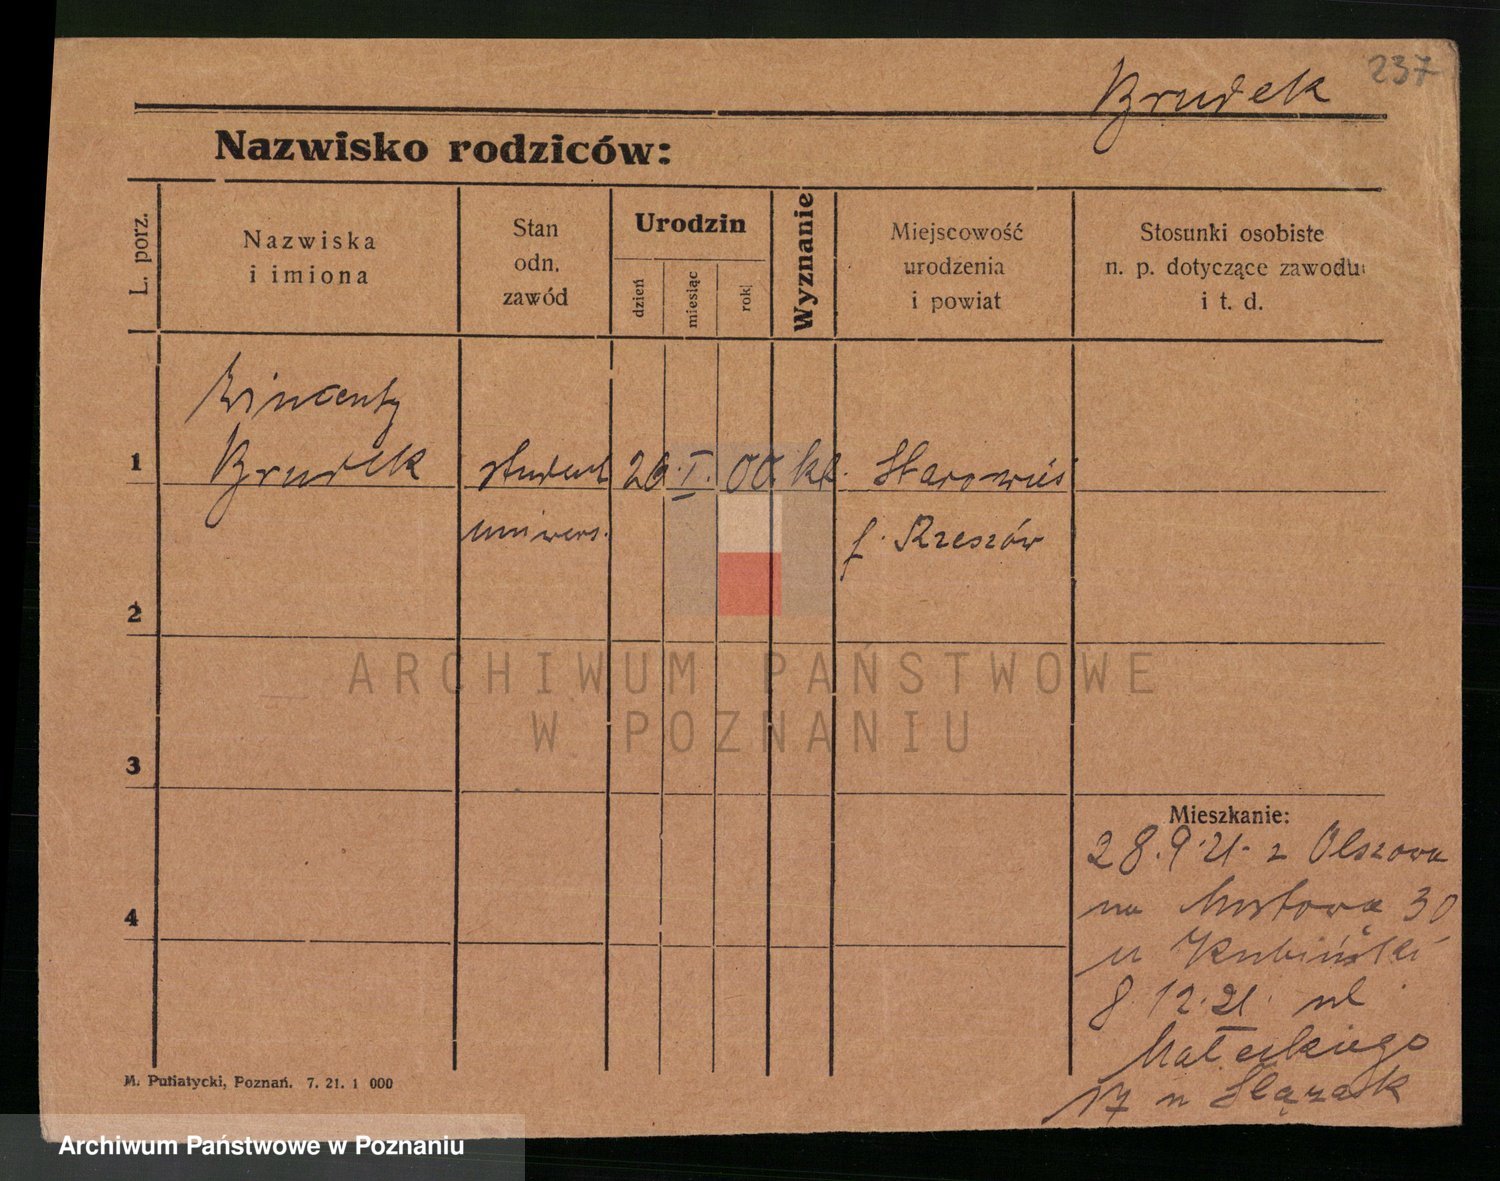 237
Brudek
Nazwisko rodziców:
L. porz.
Nazwiska
i imiona
Stan
odn.
zawód
Urodzin
dzień
miesiąc
rok
Wyznanie
Miejscowość
urodzenia
i powiat
Stosunki osobiste
n. p. dotyczące zawodu
i t. d.
Wincenty
1 Brudek student 26. I. 00. kt. Starowieś
univers. p. Rzeszów
2
3
4
Mieszkanie:
28.9.21. z Olszowa
na Mostowa 30
u Kubiński
8 12.21. ul.
Małeckiego
17 u Ślązak
M. Putiatycki, Poznań. 7. 21. 1 000
ARCHIWUM PAŃSTWOWE
W POZNANIU
Archiwum Państwowe w Poznaniu